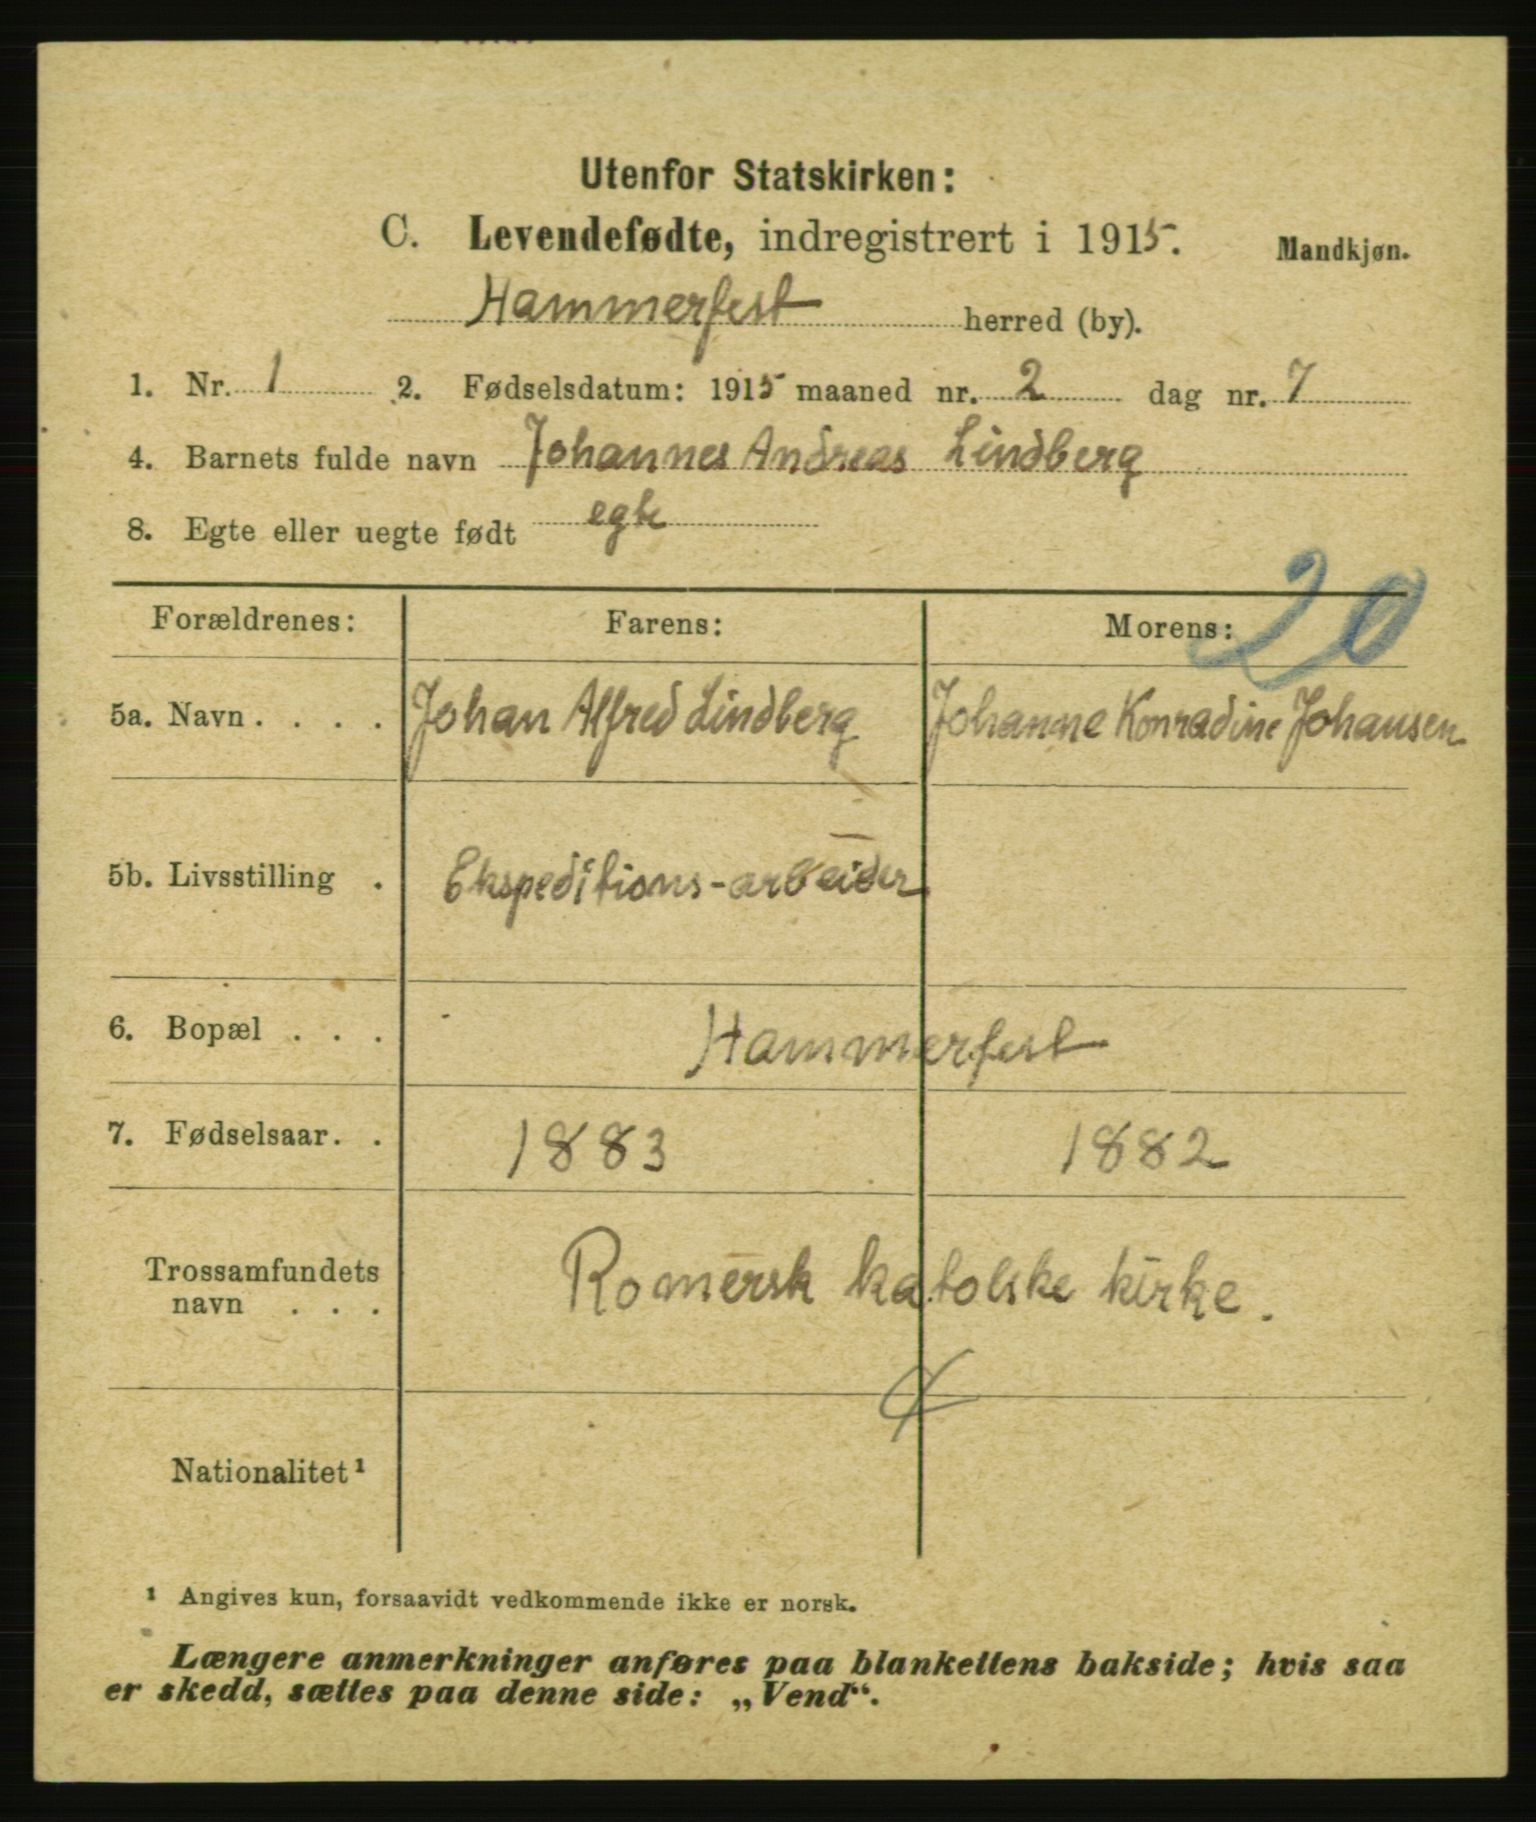 Utenfor Statskirken:
C. Levendefødte, indregistrert i 1915. Mandkjøn.
Hammerfest herred (by).
1. Nr. 1 2. Fødselsdatum: 1915 maaned nr. 2 dag nr. 7
4. Barnets fulde navn Johannes Andreas Lindberg
8. Egte eller uegte født egte
20
Forældrenes: Farens: Morens:
5a. Navn . . . . Johan Alfred Lindberg Johanne Konradine Johansen
5b. Livsstilling . Ekspeditions-arbeider
6. Bopæl . . . Hammerfest
7. Fødselsaar. . 1883 1882
Trossamfundets
navn . . . Romersk katolske kirke.
Nationalitet¹
¹ Angives kun, forsaavidt vedkommende ikke er norsk.
Længere anmerkninger anføres paa blankettens bakside; hvis saa
er skedd, sættes paa denne side: „Vend“.